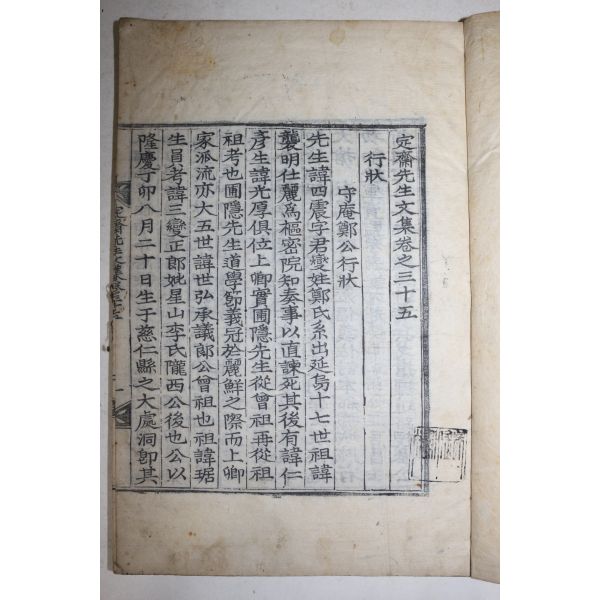 定齋先生文集卷之三十五
行狀
守庵鄭公行狀
先生諱四震字君燮姓鄭氏系出延烏十七世祖諱
襲明仕麗爲樞密院知奏事以直諫死其後有諱仁
彥生諱光厚俱位上卿實圃隱先生從曾祖再從祖
祖考也圃隱先生道學節義冠於麗鮮之際而上卿
家派流亦大五世諱世弘承議郞公曾祖也祖諱琚
生員考諱三變正郞妣星山李氏隴西公後也公以
隆慶丁卯八月二十日生于慈仁縣之大處洞卽其
定齋先生文集卷三十五
一